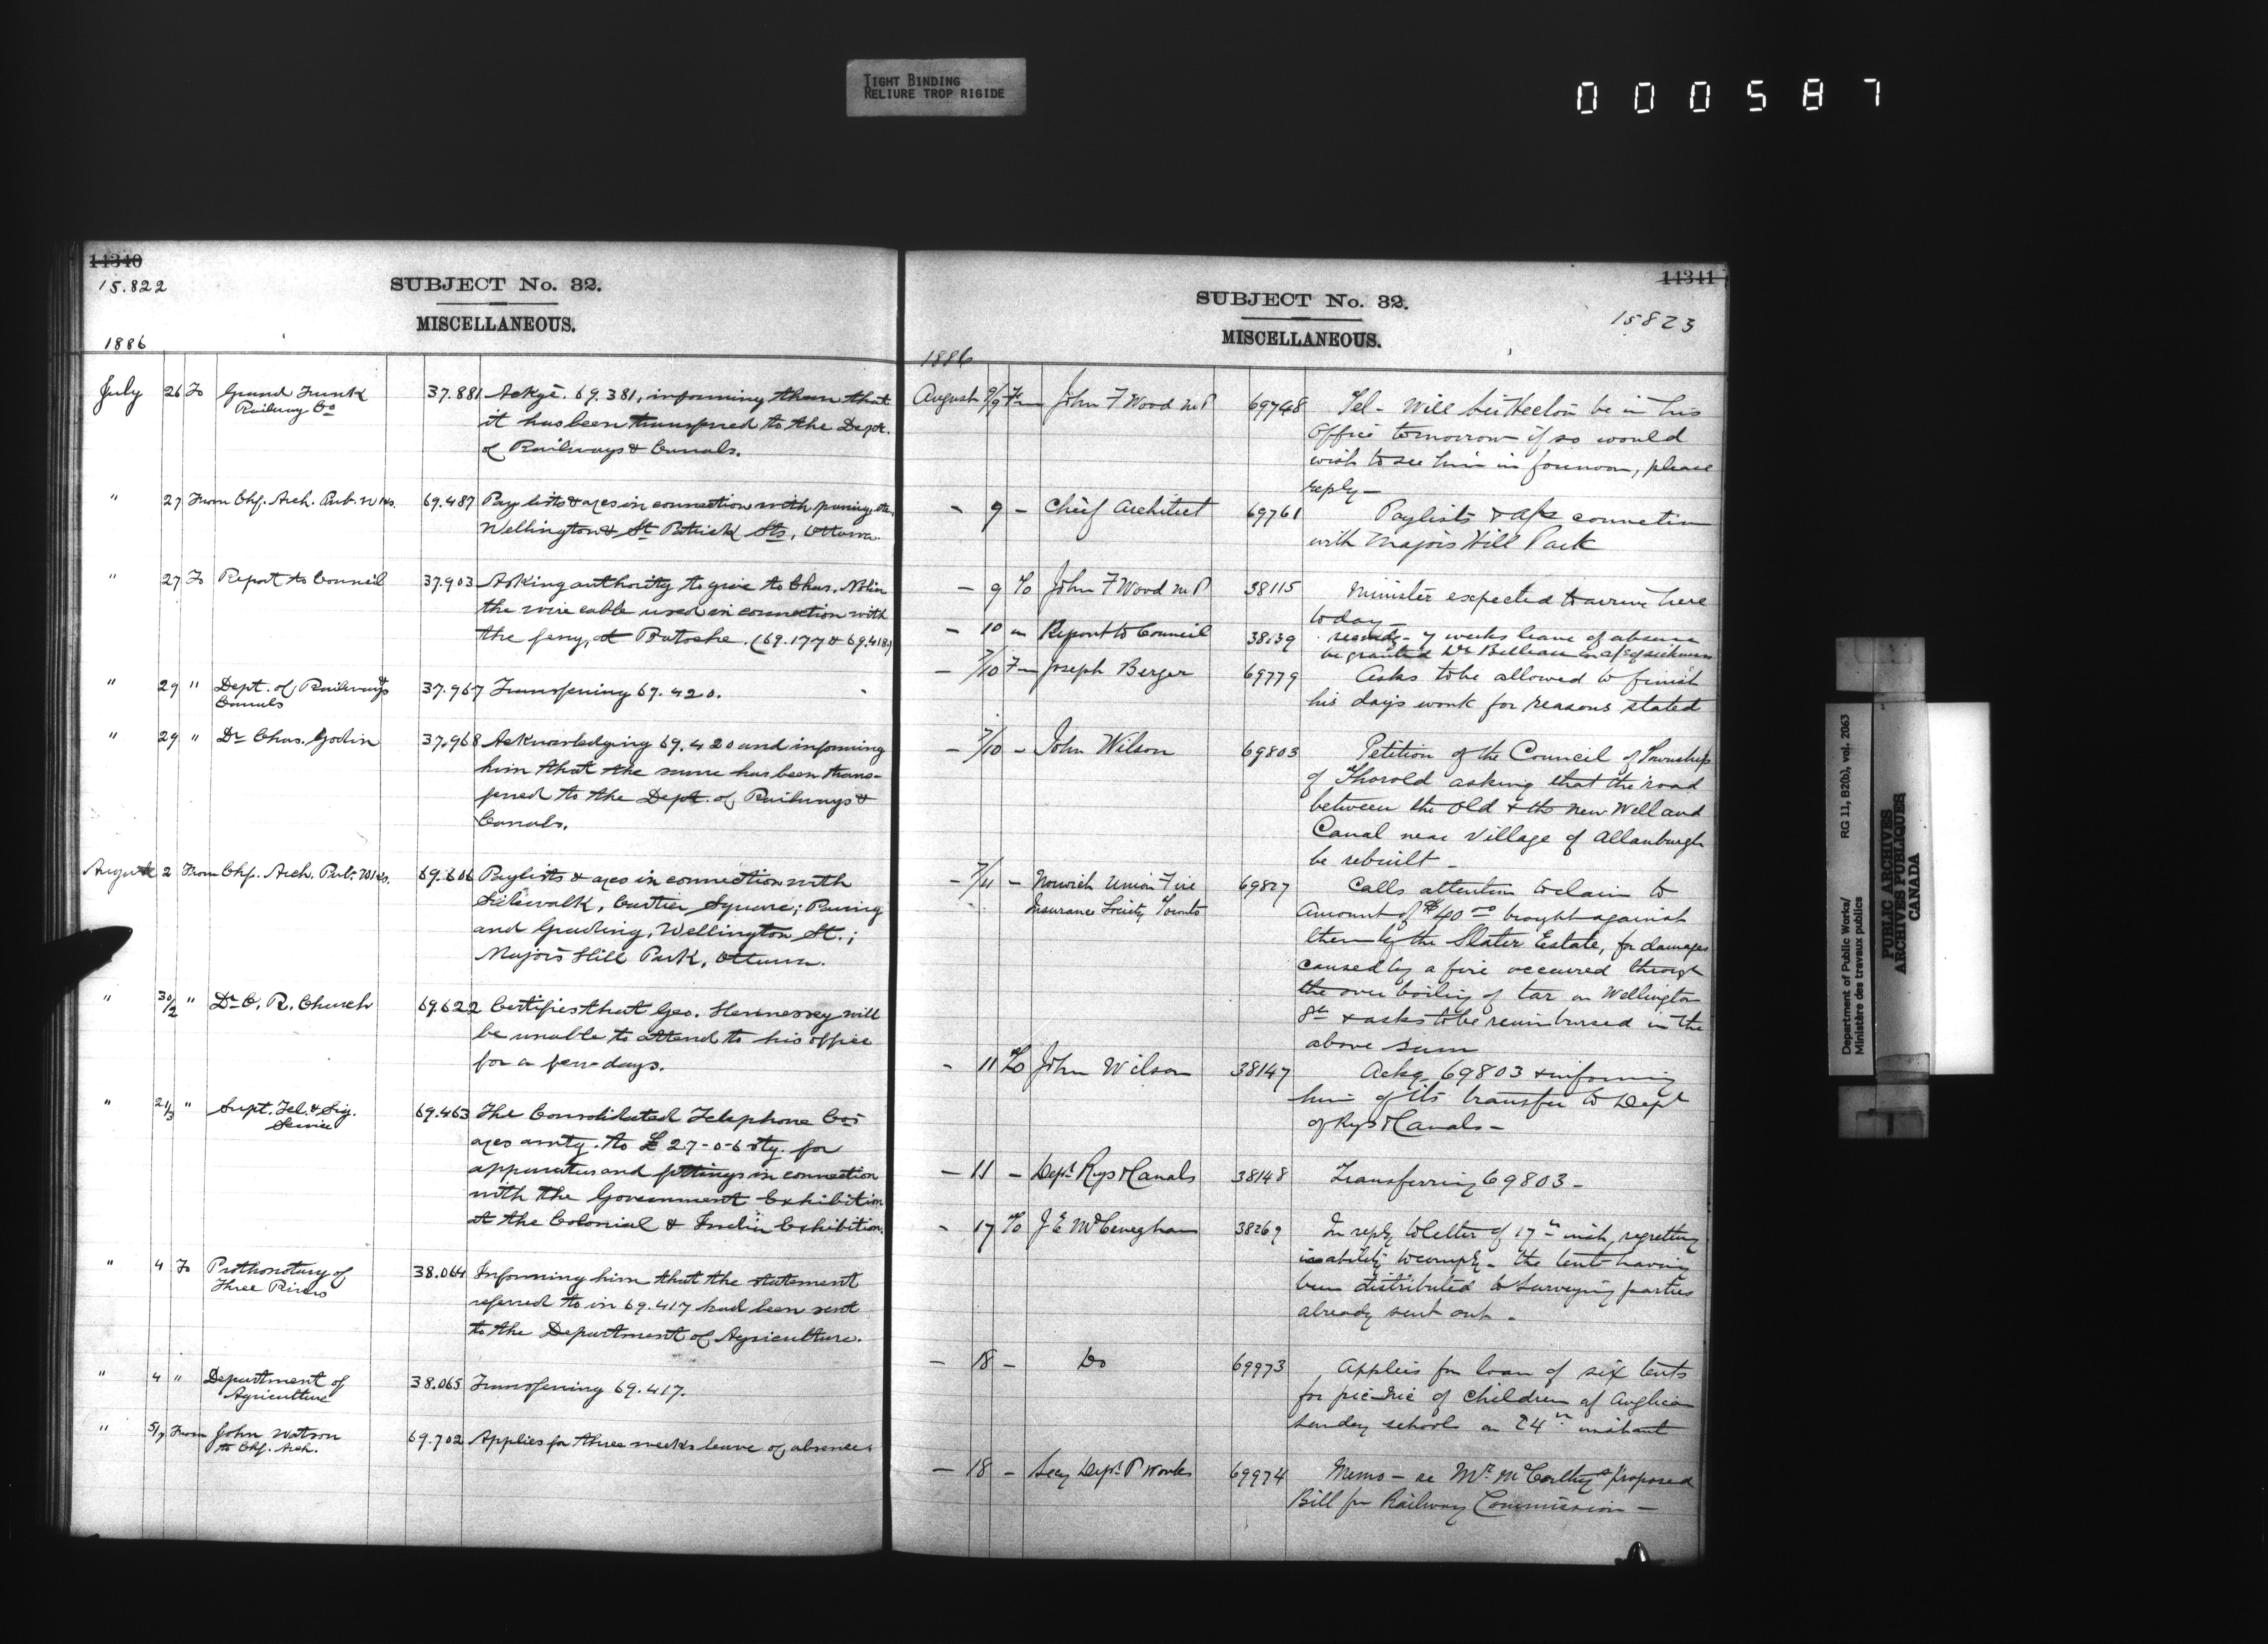 TIGHT BINDING
RELIURE TROP RIGIDE
000587
14340
15.822
SUBJECT No. 32.
MISCELLANEOUS.
1886
July 26 To Grand Trunk 37.881 Ackg. 69.381, informing them that
Railway Co it has been transferred to the Dept.
of Railways & Canals.
" 27 From Chf. Arch. Pub. Wks. 69.487 Pay lists & acs in connection with paving, etc.
Wellington & St Patrick Sts, Ottawa.
" 27 To Report to Council 37.903 Asking authority to give to Chas. Nolin
the wire cable used in connection with
the ferry, at Batoche. (69.177 & 69.418)
" 29 " Dept. of Railways & 37.967 Transferring 69.420.
Canals
" 29 " Dr Chas. Godin 37.968 Acknowledging 69.420 and informing
him that the same has been trans-
ferred to the Dept. of Railways &
Canals.
August 2 From Chf. Arch. Pub. Wks. 69.606 Paylists & acs in connection with
Sidewalk, Cartier Square; Paving
and Grading, Wellington St.;
Majors Hill Park, Ottawa.
" 30/2 " Dr C. R. Church 69.622 Certifies that Geo. Hennessey will
be unable to attend to his office
for a few days.
" 21/3 " Supt. Tel. & Sig. 69.463 The Consolidated Telephone Co's
Service acs amtg. to £27-0-6 stg. for
apparatus and fittings in connection
with the Government Exhibition
at the Colonial & Indian Exhibition.
" 4 To Prothonotary of 38.064 Informing him that the statement
Three Rivers referred to in 69.417 had been sent
to the Department of Agriculture.
" 4 " Department of 38.065 Transferring 69.417.
Agriculture
" 5/7 From John Watson 69.702 Applies for three weeks leave of absence
to Chf. Arch.
14341
SUBJECT No. 32.
15823
MISCELLANEOUS.
1886
August 9/9 Fm John F Wood M.P 69748 Tel - Will Sir Hector be in his
office tomorrow if so would
wish to see him in forenoon, please
reply -
- 9 - Chief Architect 69761 Paylists & a/cs connection
with Majors Hill Park
- 9 To John F Wood M.P 38115 Minister expected to arrive here
today -
- 10 " Report to Council 38139 recomdg - 7 weeks leave of absence
be granted Mr on a/c of sickness
- 7/10 Fm Joseph Berger 69779 Asks to be allowed to finish
his days work for reasons stated
- 7/10 - John Wilson 69803 Petition of the Council of Township
of Thorold asking that the road
between the old & the new Welland
Canal near Village of Allanburgh
be rebuilt -
- 7/11 - Norwich Union Fire 69827 Calls attention to claim to
Insurance Society Toronto amount of $40 00 brought against
them by the Slater Estate, for damages
caused by a fire occurred through
the over boiling of tar on Wellington
St & asks to be reimbursed in the
above sum
- 11 To John Wilson 38147 Ackg 69803 & informing
him of its transfer to Dept
of Rys & Canals -
- 11 - Dept Rys & Canals 38148 Transferring 69803 -
- 17 To J E McCenegham 38269 In reply to letter of 17th inst, regretting
inability to comply - the tents having
been distributed to surveying parties
already sent out -
- 18 - Do 69973 Applies for loan of six tents
for pic-nic of children of Anglican
Sunday schools on 24th instant
- 18 - Secy Dept P Works 69974 Memo - re Mr McCarthys proposed
Bill for Railway Commission -
Department of Public Works/ RG 11, B2(b), vol. 2063
Ministère des travaux publics
PUBLIC ARCHIVES
ARCHIVES PUBLIQUES
CANADA